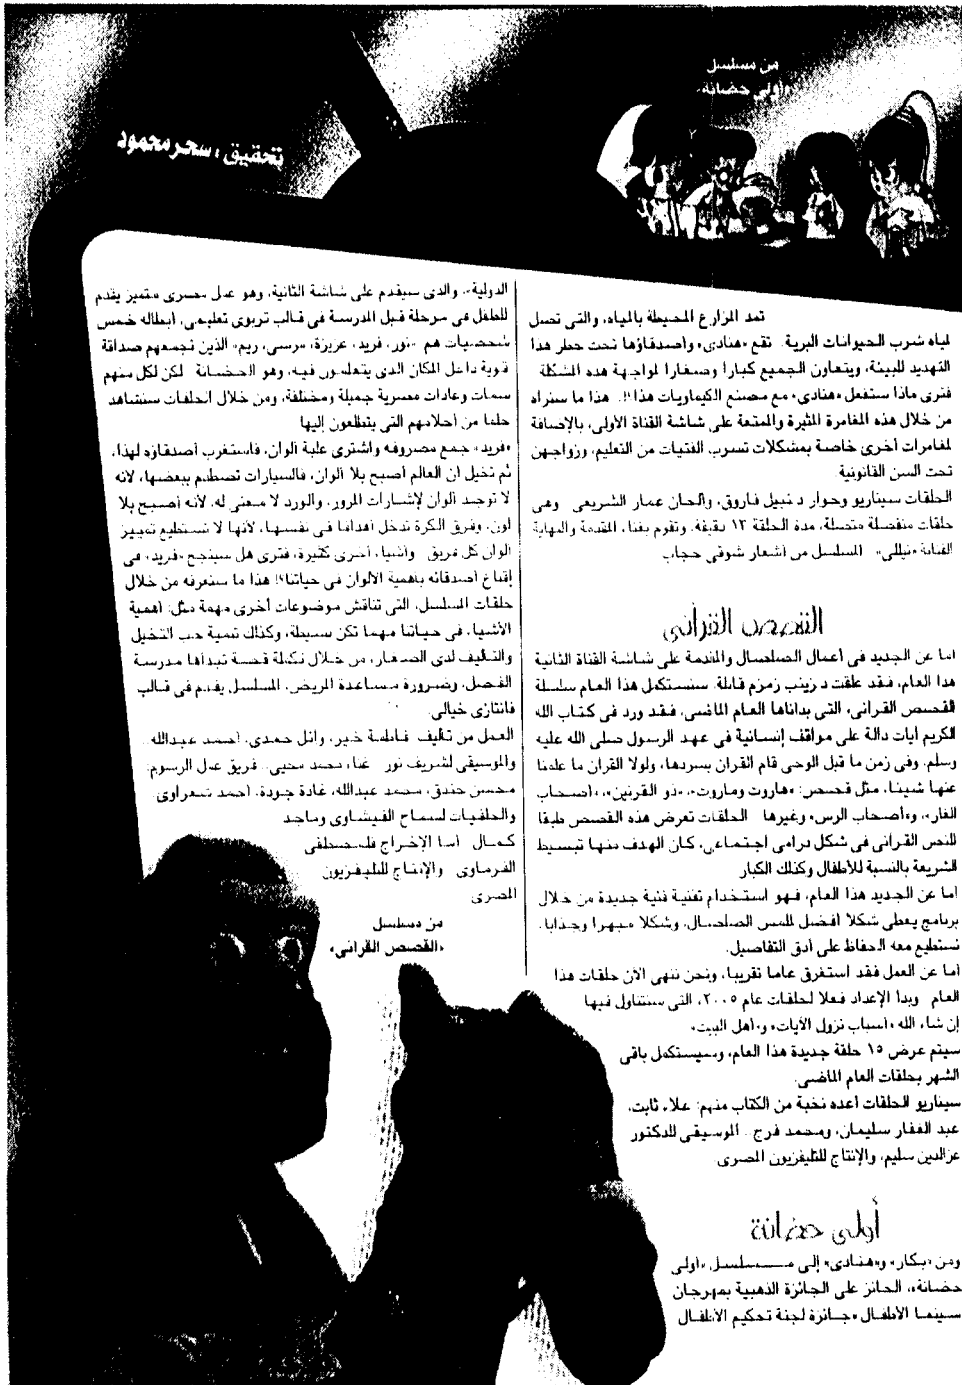 من مسلسل
«أولى حضانة»
تحقيق : سحر محمود
تمد المزارع المحيطة بالمياه، والتى تصل
لمياه شرب الحيوانات البرية. تقع «هنادى» وأصدقاؤها تحت خطر هذا
التهديد للبيئة، ويتعاون الجميع كبارا وصغارا لمواجهة هذه المشكلة
فترى ماذا ستفعل «هنادى» مع مصنع الكيماويات هذا؟!. هذا ما سنراه
من خلال هذه المغامرة المثيرة والممتعة على شاشة القناة الأولى، بالإضافة
لمغامرات أخرى خاصة بمشكلات تسرب الفتيات من التعليم، وزواجهن
تحت السن القانونية
الحلقات سيناريو وحوار د نبيل فاروق، وألحان عمار الشريعى وهى
حلقات منفصلة متصلة، مدة الحلقة ١٣ دقيقة، وتقوم بغناء المقدمة والنهاية
الفنانة «نيللى» المسلسل من أشعار شوقى حجاب
القصص القرآنى
أما عن الجديد فى أعمال الصلصال والمقدمة على شاشة القناة الثانية
هذا العام، فقد علقت د زينب زمزم قائلة. سنستكمل هذا العام سلسلة
القصص القرآنى، التى بدأناها العام الماضى، فقد ورد فى كتاب الله
الكريم آيات دالة على مواقف إنسانية فى عهد الرسول صلى الله عليه
وسلم، وفى زمن ما قبل الوحى قام القرآن بسردها، ولولا القرآن ما علمنا
عنها شيئا، مثل قصص: «هاروت وماروت»، «ذو القرنين»، «أصحاب
الغار»، و«أصحاب الرس» وغيرها الحلقات تعرض هذه القصص طبقا
للنص القرآنى فى شكل درامى اجتماعى، كان الهدف منها تبسيط
الشريعة بالنسبة للأطفال وكذلك الكبار
أما عن الجديد هذا العام، فهو استخدام تقنية فنية جديدة من خلال
برنامج يعطى شكلا أفضل للمس الصلصال، وشكلا مبهرا وجذابا،
نستطيع معه الحفاظ على أدق التفاصيل.
أما عن العمل فقد استغرق عاما تقريبا، ونحن ننهى الآن حلقات هذا
العام وبدأ الإعداد فعلا لحلقات عام ٢٠٠٥، التى سنتناول فيها
إن شاء الله «أسباب نزول الآيات» و«أهل البيت»
سيتم عرض ١٥ حلقة جديدة هذا العام، وسيستكمل باقى
الشهر بحلقات العام الماضى.
سيناريو الحلقات أعده نخبة من الكتاب منهم: علاء ثابت،
عبد الغفار سليمان، ومحمد فرج.. الموسيقى للدكتور
عزالدين سليم، والإنتاج للتليفزيون المصرى
أولى حضانة
ومن «بكار» و«هنادى» إلى مسلسل «أولى
حضانة»، الحائز على الجائزة الذهبية بمهرجان
سينما الأطفال «جائزة لجنة تحكيم الأطفال
الدولية»، والذى سيقدم على شاشة الثانية، وهو عمل مصرى متميز يقدم
للطفل فى مرحلة قبل المدرسة فى قالب تربوى تعليمى، أبطاله خمس
شخصيات هم «نور، فريد، عزيزة، مرسى، ريم» الذين تجمعهم صداقة
قوية داخل المكان الذى يتعلمون فيه، وهو الحضانة لكن لكل منهم
سمات وعادات مصرية جميلة ومختلفة، ومن خلال الحلقات سنشاهد
حلما من أحلامهم التى يتطلعون إليها
«فريد» جمع مصروفه واشترى علبة ألوان، فاستغرب أصدقاؤه لهذا،
ثم تخيل أن العالم أصبح بلا ألوان، فالسيارات تصطدم ببعضها، لأنه
لا توجد ألوان لإشارات المرور، والورد لا معنى له، لأنه أصبح بلا
لون، وفرق الكرة تدخل أهدافا فى نفسها، لأنها لا تستطيع تمييز
ألوان كل فريق وأشياء أخرى كثيرة، فترى هل سينجح «فريد» فى
إقناع أصدقائه بأهمية الألوان فى حياتنا؟! هذا ما سنعرفه من خلال
حلقات المسلسل، التى تناقش موضوعات أخرى مهمة مثل: أهمية
الأشياء فى حياتنا مهما تكن بسيطة، وكذلك تنمية حب التخيل
والتأليف لدى الصغار، من خلال تكملة قصة تبدأها مدرسة
الفصل، وضرورة مساعدة المريض، المسلسل يقدم فى قالب
فانتازى خيالى.
العمل من تأليف فاطمة خير، وائل حمدى، أحمد عبدالله..
والموسيقى لشريف نور غناء محمد محيى.. فريق عمل الرسوم:
محسن حندق، محمد عبدالله، غادة جودة، أحمد شعراوى
والخلفيات لسماح الفيشاوى وماجد
كمال أما الإخراج فلمصطفى
الفرماوى والإنتاج للتليفزيون
المصرى
من مسلسل
«القصص القرآنى»